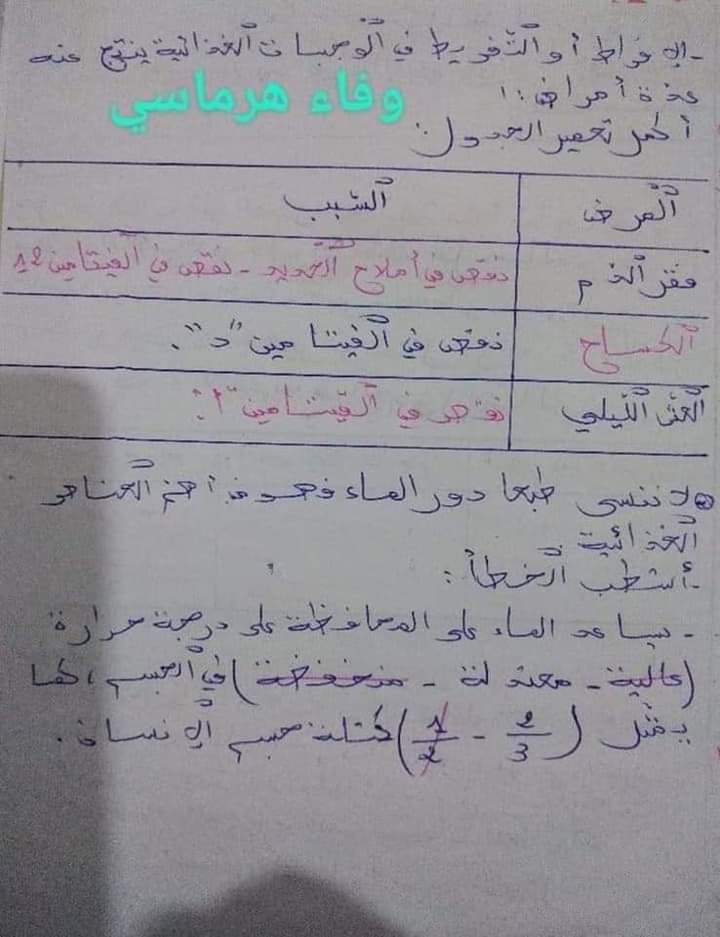 - الإفراط أو التّفريط في الوجبات الغذائية ينتج عنه
عدّة أمراض:
وفاء هرماسي
أكمل تعمير الجدول:
المرض السّبب
فقر الدّم نقص في أملاح الحديد - نقص في الفيتامين 12
الكساح نقص في الفيتامين "د".
العشى اللّيلي نقص في الفيتامين "أ".
لا ننسى طبعا دور الماء فهو من أهم العناصر
الغذائية
- أشطب الخطأ:
- يساعد الماء على المحافظة على درجة حرارة
(عالية - معتدلة - منخفضة) في الجسم، كما
يمثّل (2/3 - 1/2) كتلة جسم الإنسان.